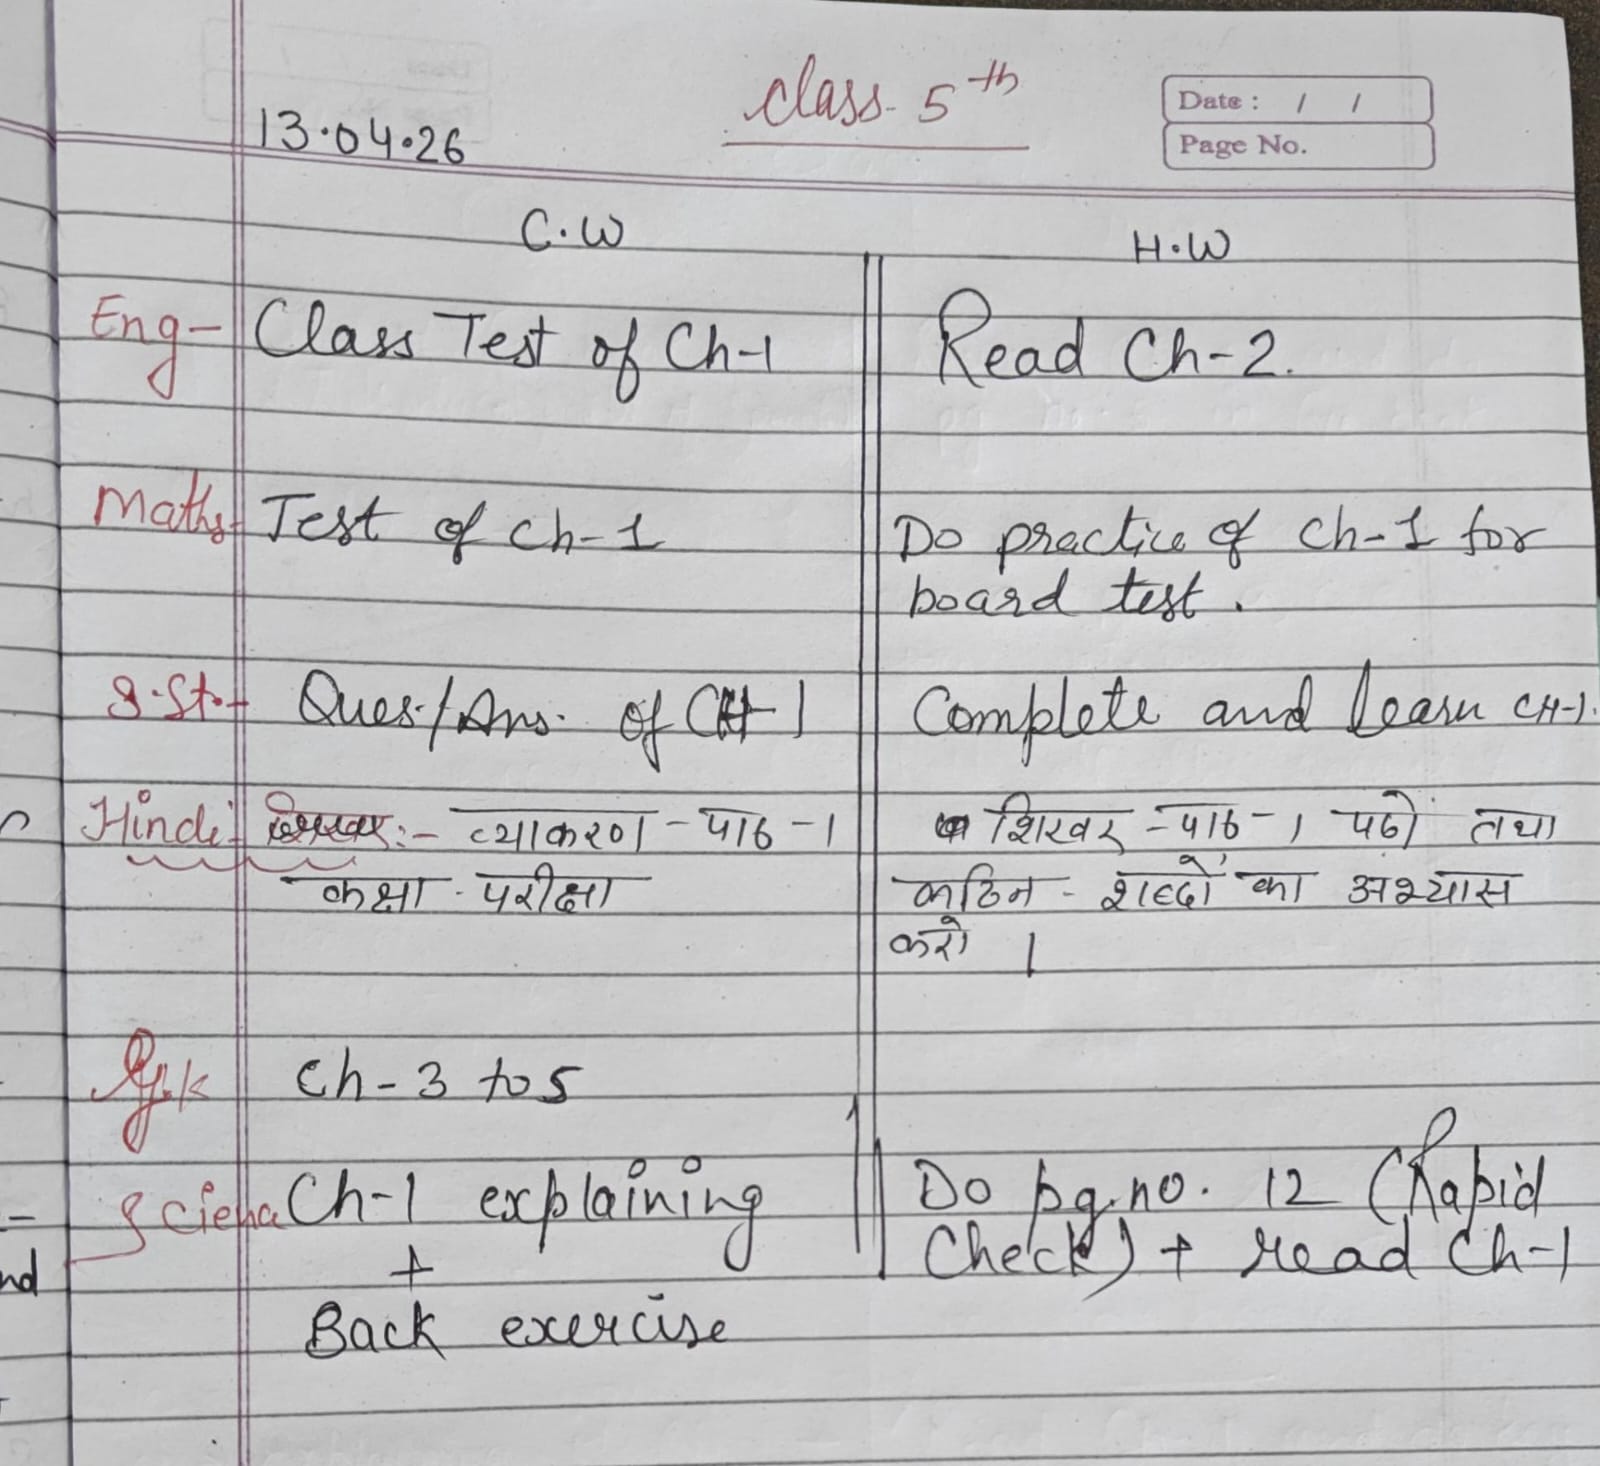 class- 5th
Date : / /
13.04.26
Page No.
C.W
H.W
Eng- Class Test of Ch-1
Read Ch-2.
Maths- Test of Ch-1
Do practice of Ch-1 for
board test.
S.St.- Ques./Ans. of CH-1
Complete and learn CH-1.
Hindi- :- व्याकरण - पाठ -1
शिखर - पाठ -1 पढो तथा
कक्षा - परीक्षा
कठिन - शब्दों का अभ्यास
करो ।
G.k Ch-3 to 5
Science Ch-1 explaining
Do pg.no. 12 (Rapid
+
Check) + read Ch-1
Back exercise
nd